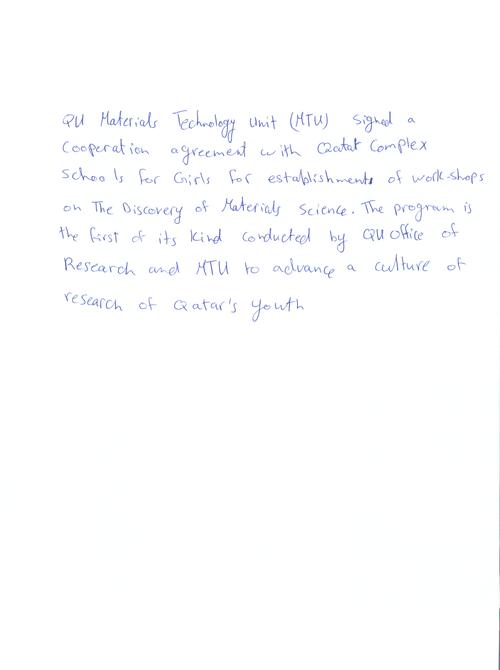 QU Materials Technology Unit (MTU) Signed a
Cooperation agreement with Qatat Complex
Schools for Girls for establishments of work-shops
on The Discovery of Materials Science. The program is
the first of its kind conducted by QU Office of
Research and MTU to advance a culture of
research of Qatar's youth